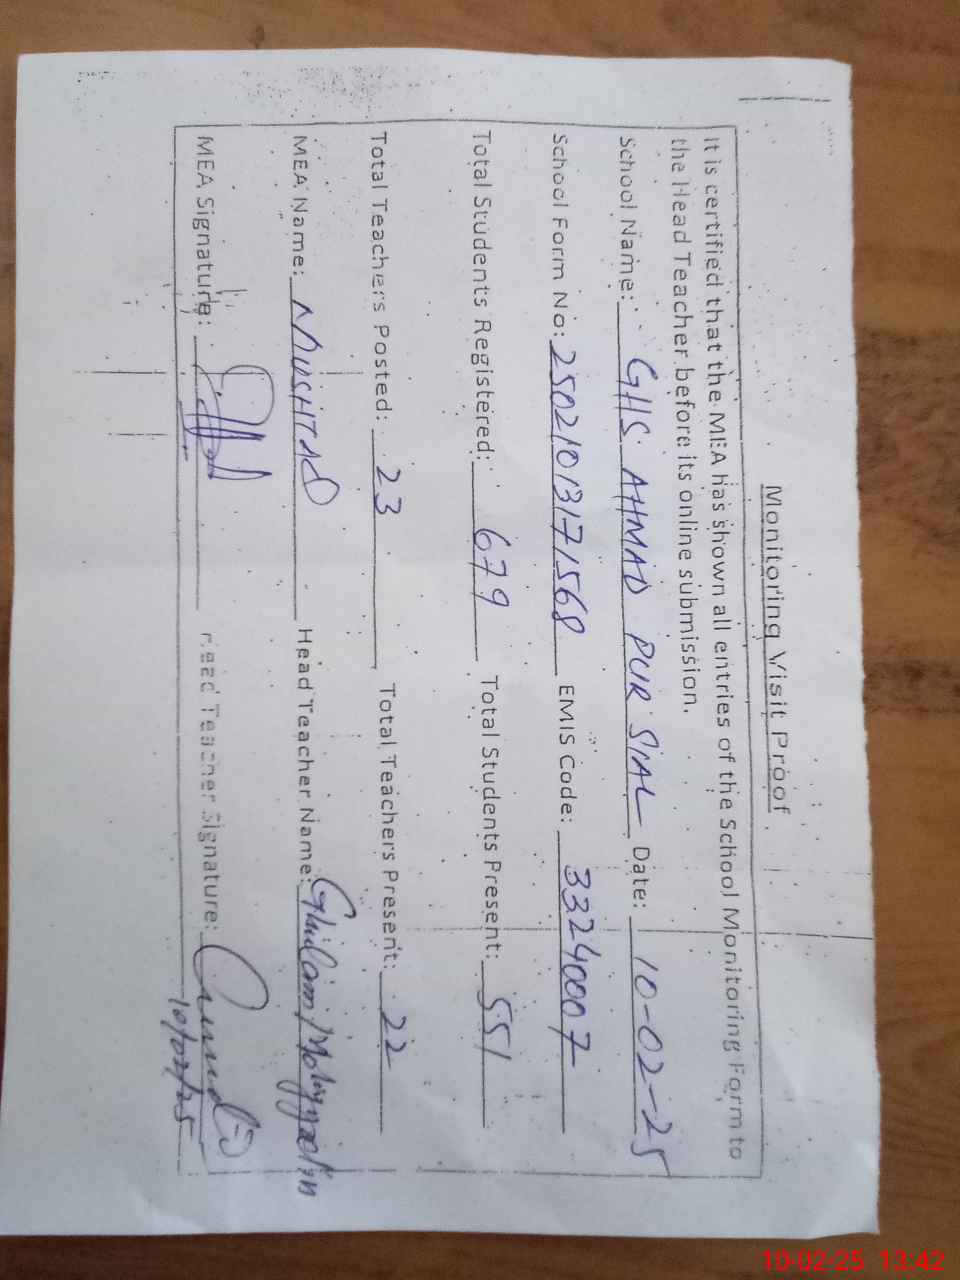 Monitoring Visit Proof
It is certified that the MEA has shown all entries of the School Monitoring Form to
the Head Teacher before its online submission.
School Name: GHS AHMAD PUR SIAL Date: 10-02-25
School Form No: 25021013171568 EMIS Code: 33240007
Total Students Registered: 679 Total Students Present: 551
Total Teachers Posted: 23 Total Teachers Present: 22
MEA Name: MUSHTAQ Head Teacher Name: Ghulam Mohyyudin
MEA Signature: Head Teacher Signature:
10/02/25
10-02-25 13:42